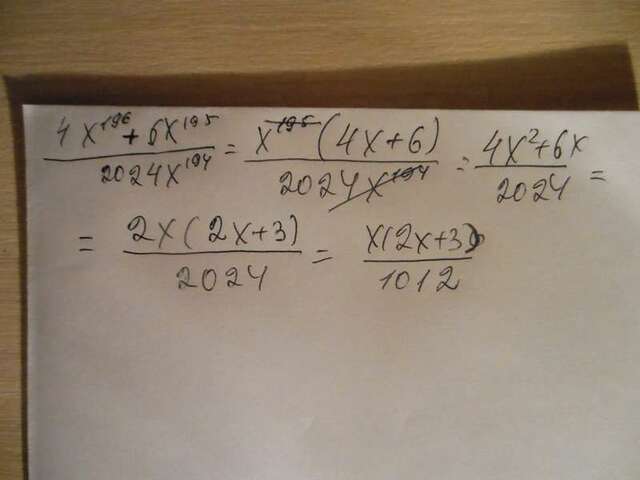 (4x¹⁹⁶ + 6x¹⁹⁵)/(2024x¹⁹⁴) = (x¹⁹⁵(4x+6))/(2024x¹⁹⁴) = (4x²+6x)/2024 =
= (2x(2x+3))/2024 = (x(2x+3))/1012